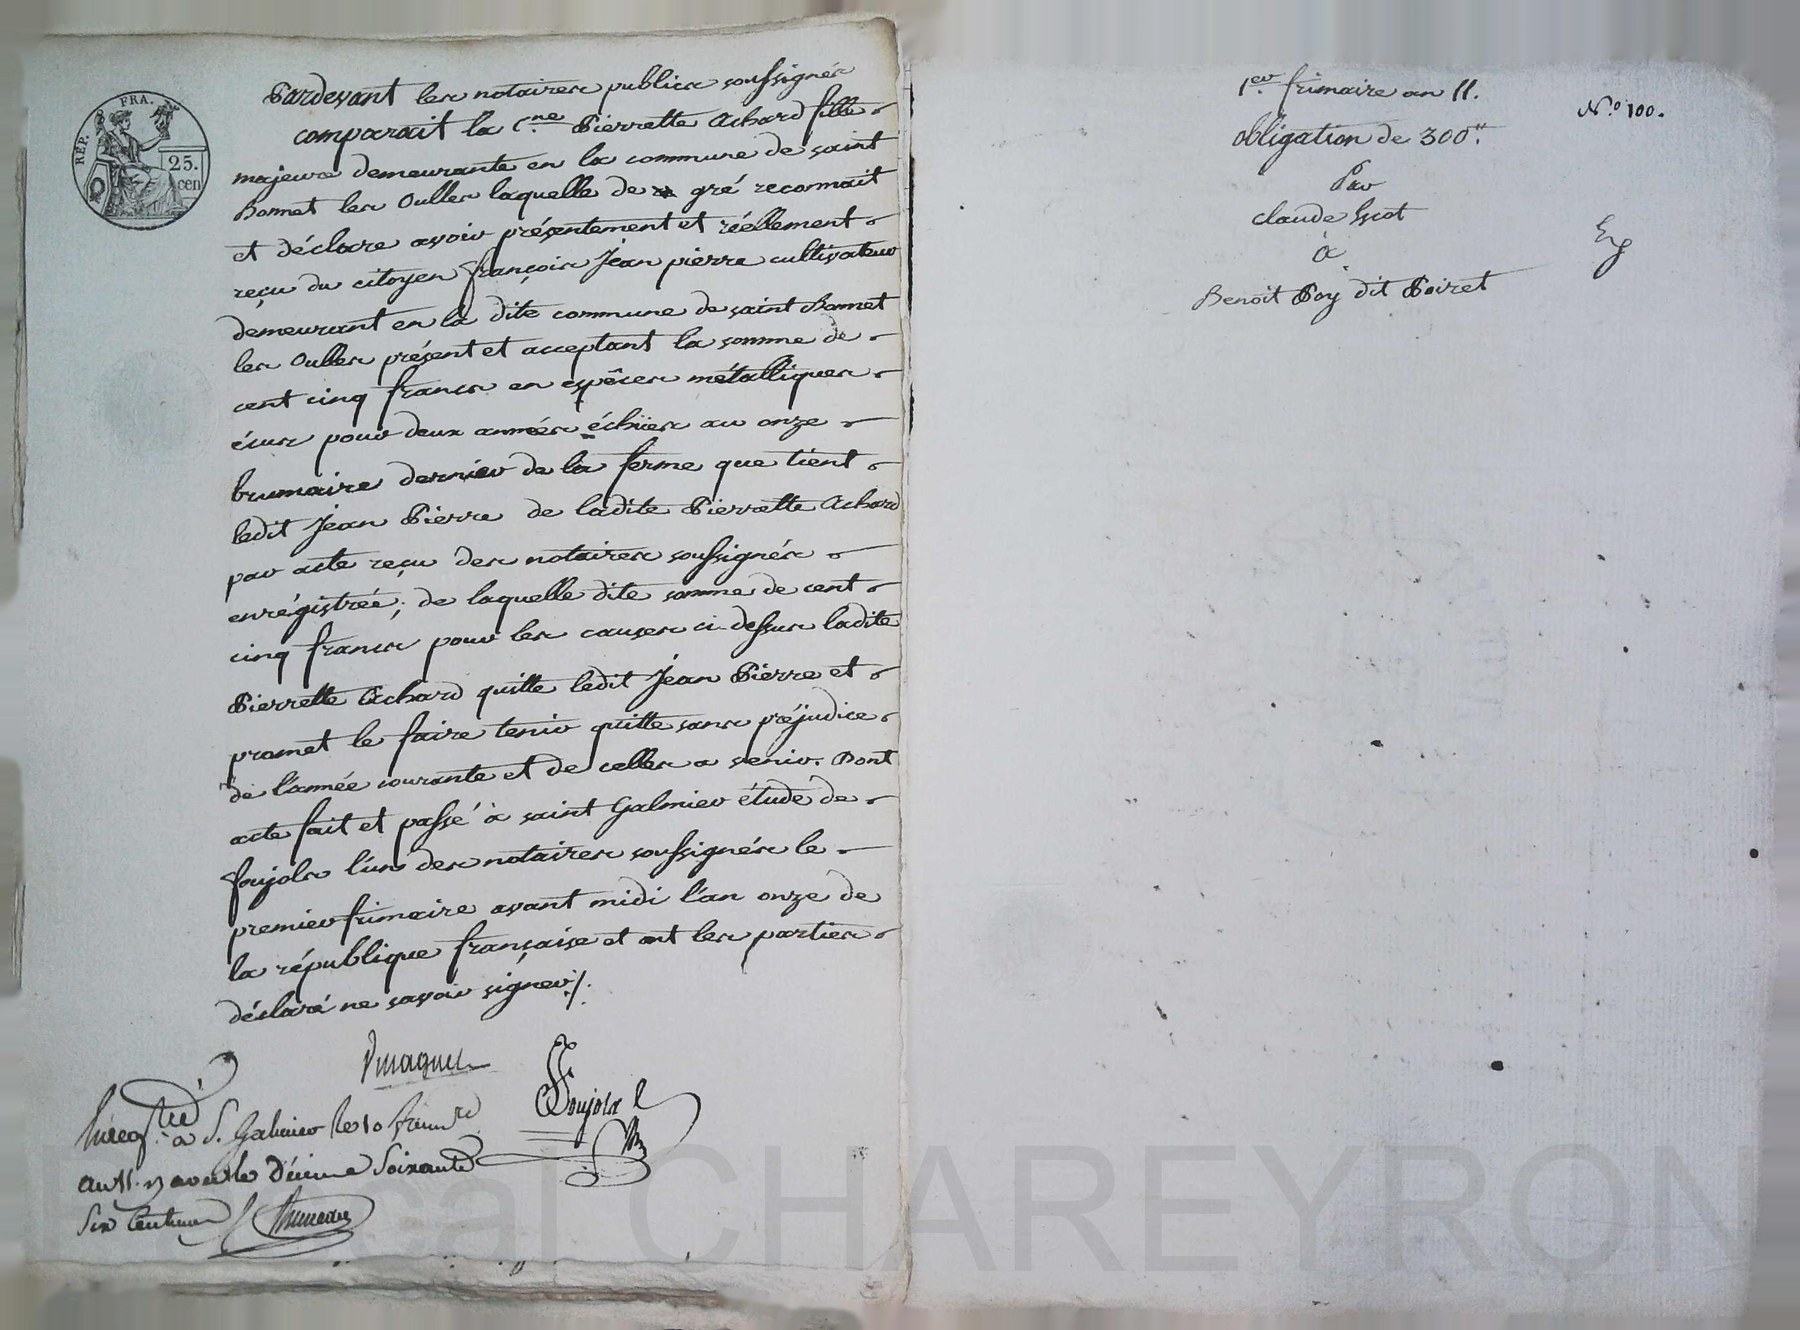 RÉP. FRA.
25.
cen
Pardevant les notaires publics soussignés
comparait la C.ne Pierrette Achard fille
majeure demeurante en la commune de saint
Bonnet les Oulles laquelle de gré reconnait
et déclare avoir présentement et réellement
reçu du citoyen françois Jean pierre cultivateur
demeurant en la dite commune de saint Bonnet
les Oulles présent et acceptant la somme de
cent cinq francs en espêces métalliques
écus pour deux années échües au onze
brumaire dernier de la ferme que tient
ledit Jean Pierre de ladite Pierrette Achard
par acte reçu des notaires soussignés
enrégistrée; de laquelle dite somme de cent
cinq francs pour les causes ci-dessus ladite
Pierrette Achard quitte ledit Jean Pierre et
promet le faire tenir quitte sans préjudice
de l'année courante et de celles a venir. Dont
acte fait et passé à saint Galmier étude de
foujols l'un des notaires soussignés le
premier frimaire avant midi l'an onze de
la république française et ont les parties
déclaré ne savoir signer ./.
Foujols
à S. Galmier le 10 frim.re
an 11. décime soixante
Six Centimes
1.er frimaire an 11.
N.o 100.
obligation de 300.tt
Par
claude
à
Benoit Poy dit Poiret
Pascal CHAREYRON